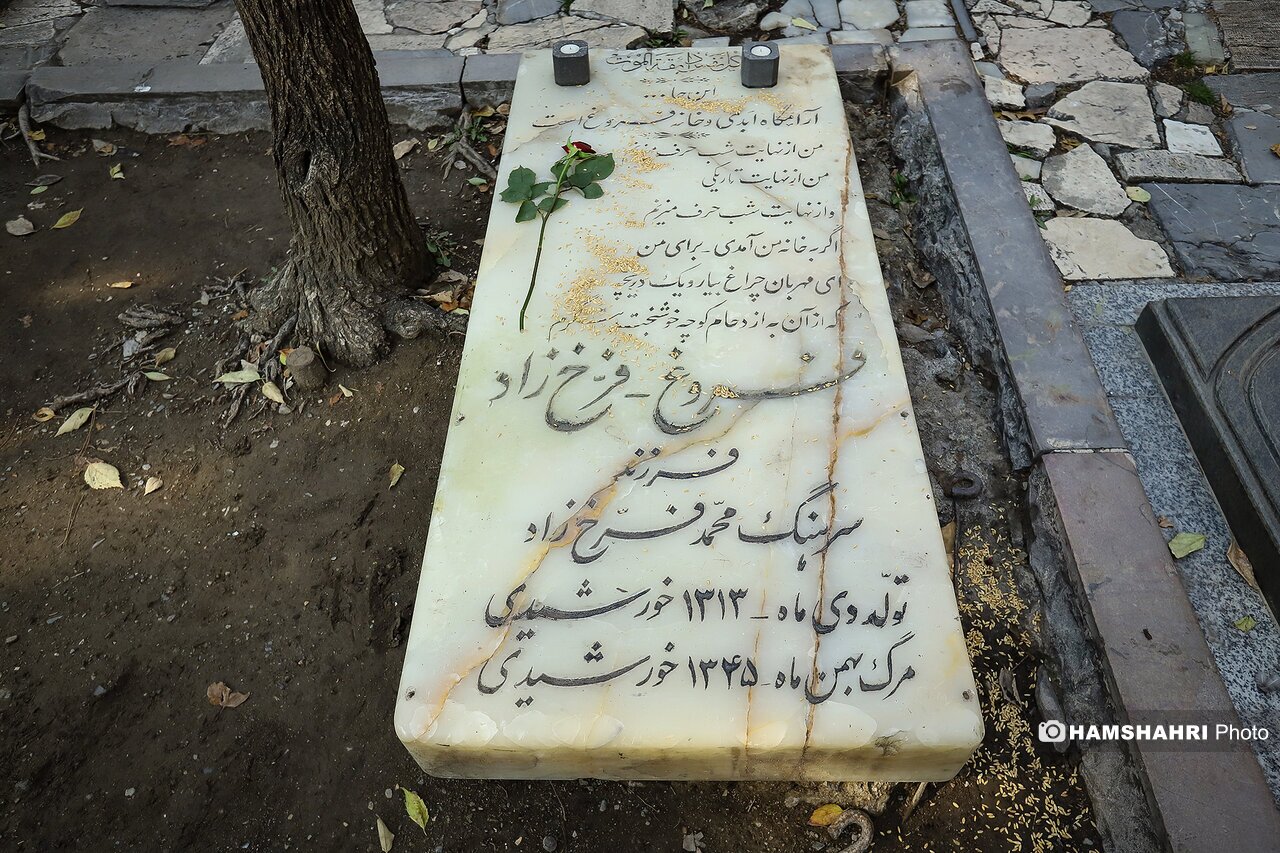 کل نفس ذائقة الموت
این جا...
آرامگاه ابدی و خانه فروغ است
من از نهایت شب حرف میزنم
من از نهایت تاریکی
و از نهایت شب حرف میزنم
اگر به خانه من آمدی - برای من
ای مهربان چراغ بیار و یک دریچه
که از آن به ازدحام کوچه خوشبخت بنگرم
فروغ - فرّخ زاد
فرزند
سرهنگ محمّد فرّخ زاد
تولّد دی ماه - ۱۳۱۳ خورشیدی
مرگ بهمن ماه - ۱۳۴۵ خورشیدی
HAMSHAHRI Photo